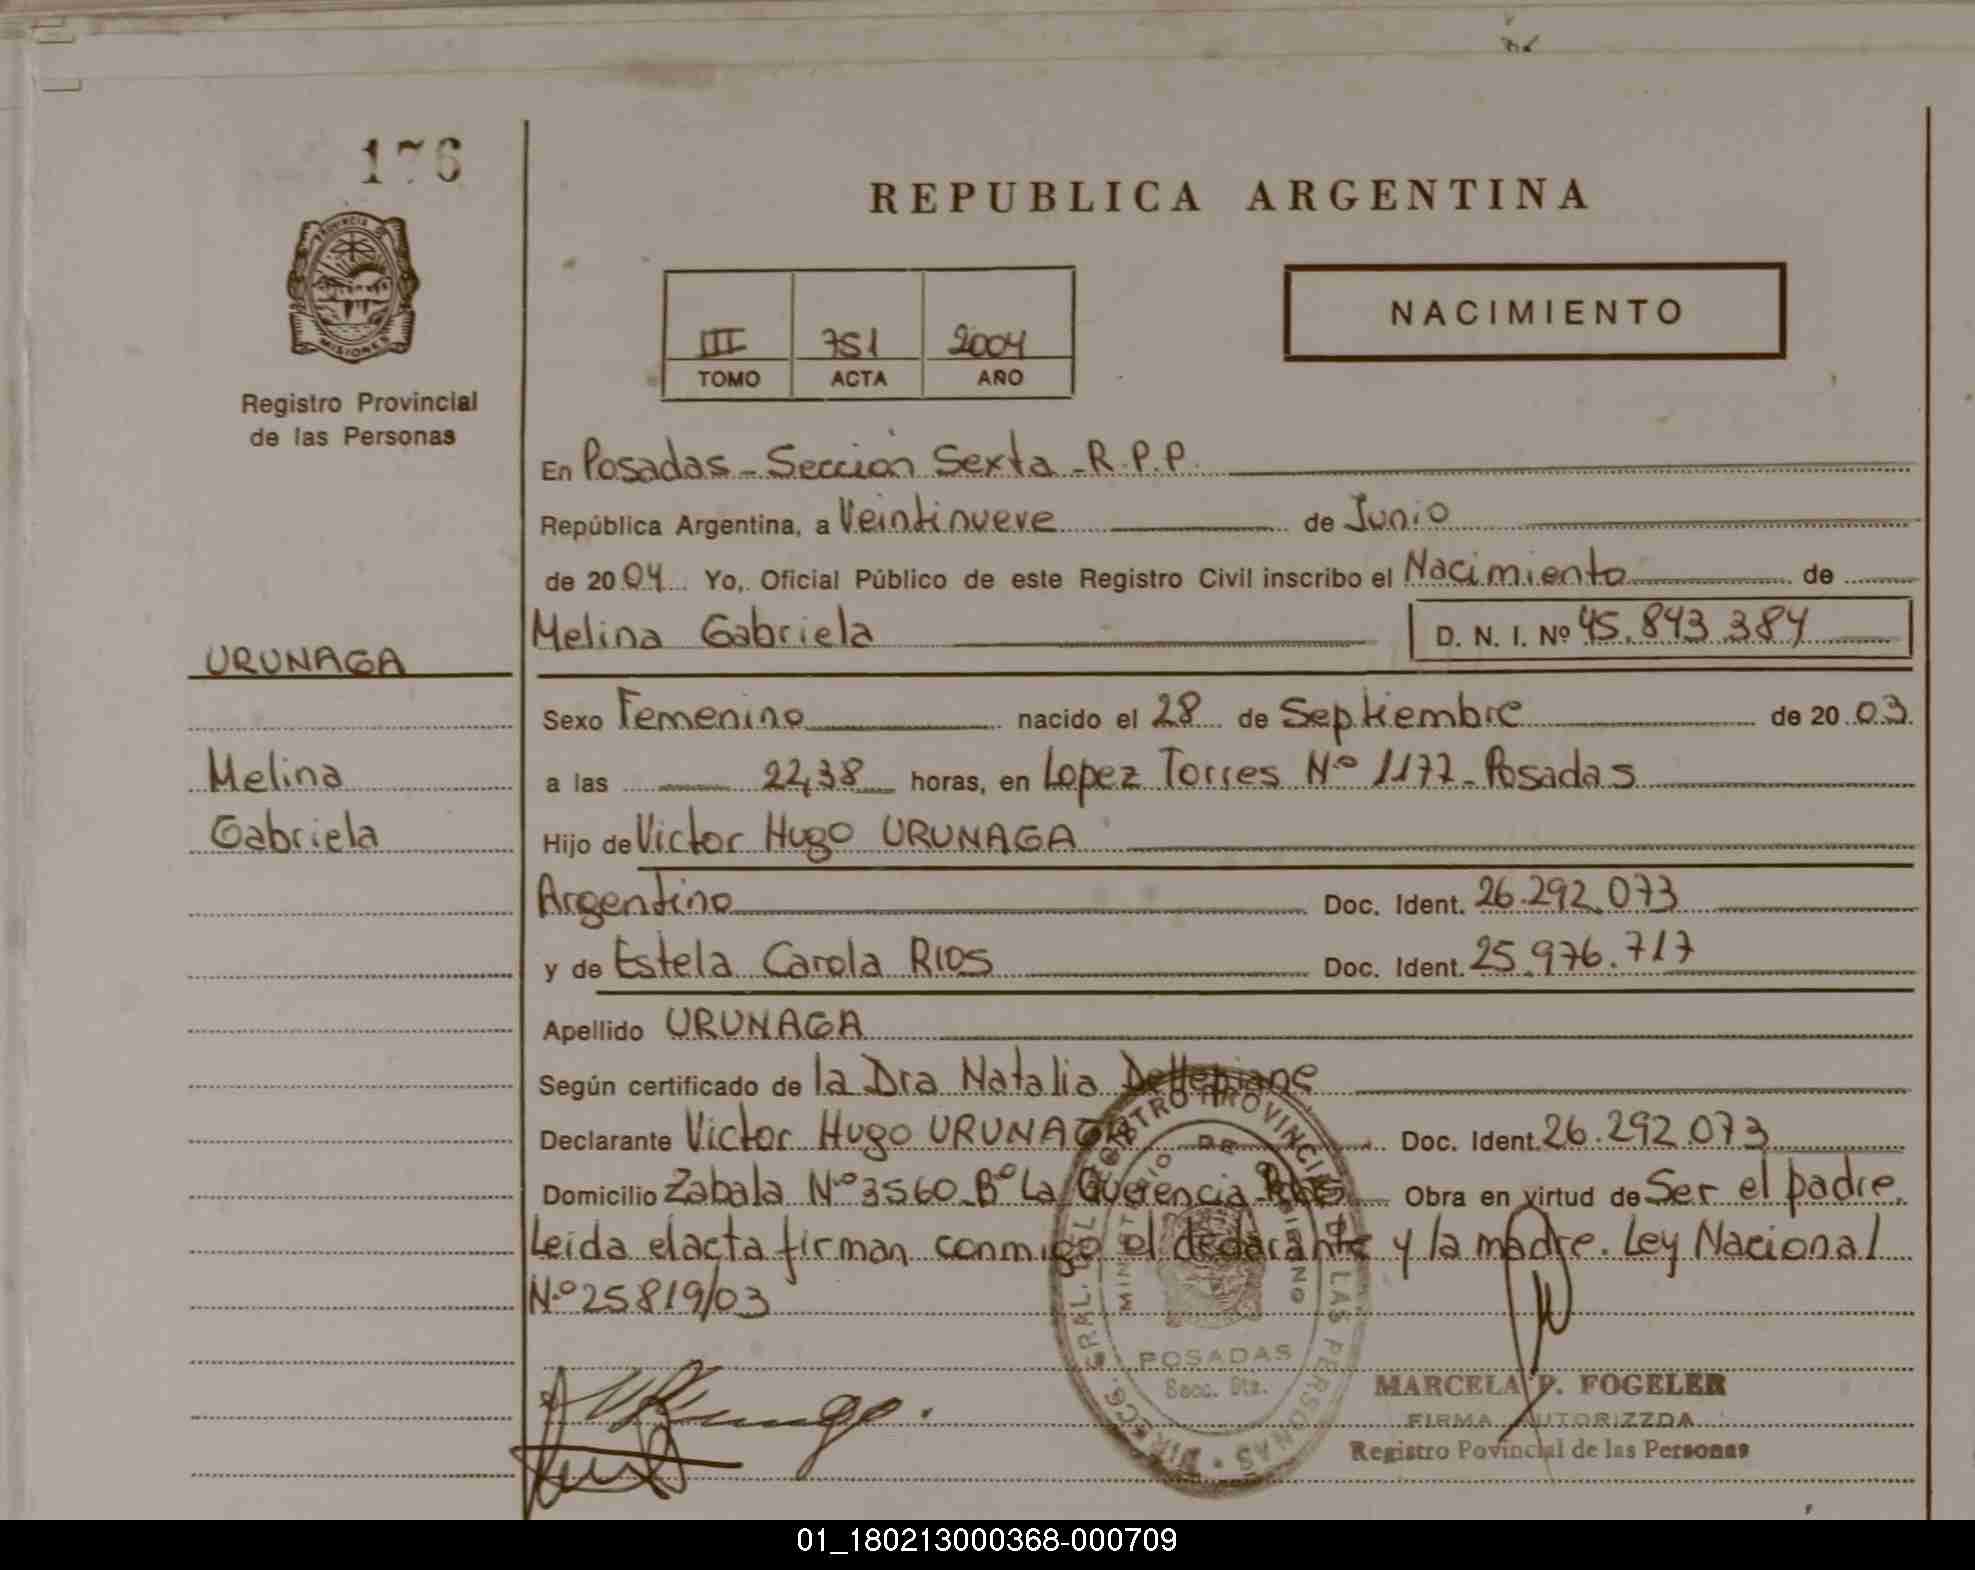 176
REPUBLICA ARGENTINA
PROVINCIA DE
MISIONES
Registro Provincial
de las Personas
NACIMIENTO
III 751 2004
TOMO ACTA AÑO
En Posadas - Sección Sexta - R.P.P.
República Argentina, a Veintinueve de Junio
de 20 04 Yo, Oficial Público de este Registro Civil inscribo el Nacimiento de
Melina Gabriela D. N. I. Nº 45.843.384
URUNAGA
Sexo Femenino nacido el 28 de Septiembre de 20 03
Melina
a las 22,38 horas, en Lopez Torres Nº 1177 - Posadas
Gabriela
Hijo de Victor Hugo URUNAGA
Argentino Doc. Ident. 26.292.073
y de Estela Carola RIOS Doc. Ident. 25.976.717
Apellido URUNAGA
Según certificado de la Dra Natalia Dellepiane
Declarante Victor Hugo URUNAGA Doc. Ident. 26.292.073
Domicilio Zabala Nº 3560 - Bº La Querencia - Pdas Obra en virtud de Ser el padre.
Leida el acta firman conmigo el declarante y la madre. Ley Nacional
Nº 25819/03
DIRECC. GRAL. DEL REGISTRO PROVINCIAL DE LAS PERSONAS
MINISTERIO DE GOBIERNO
POSADAS
Secc. 6ta.
MARCELA P. FOGELER
FIRMA AUTORIZZDA
Registro Povincial de las Personas
01_180213000368-000709